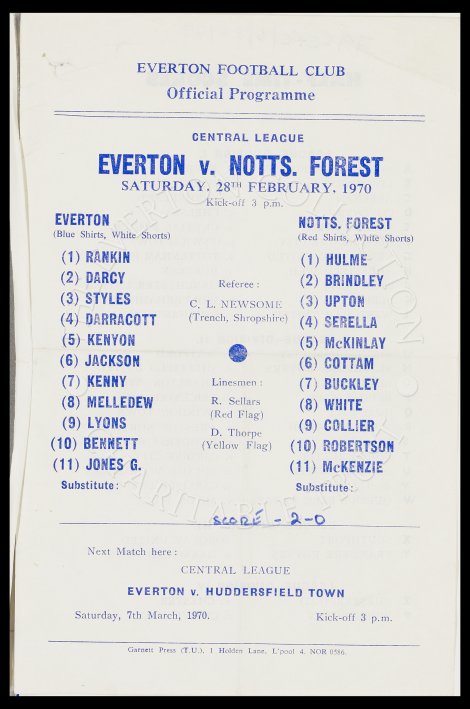 EVERTON FOOTBALL CLUB
Official Programme
CENTRAL LEAGUE
EVERTON v. NOTTS. FOREST
SATURDAY, 28TH FEBRUARY, 1970
Kick-off 3 p.m.
EVERTON
(Blue Shirts, White Shorts)
(1) RANKIN
(2) DARCY
(3) STYLES
(4) DARRACOTT
(5) KENYON
(6) JACKSON
(7) KENNY
(8) MELLEDEW
(9) LYONS
(10) BENNETT
(11) JONES G.
Substitute:
Referee:
C. L. NEWSOME
(Trench, Shropshire)
Linesmen:
R. Sellars
(Red Flag)
D. Thorpe
(Yellow Flag)
NOTTS. FOREST
(Red Shirts, White Shorts)
(1) HULME
(2) BRINDLEY
(3) UPTON
(4) SERELLA
(5) McKINLAY
(6) COTTAM
(7) BUCKLEY
(8) WHITE
(9) COLLIER
(10) ROBERTSON
(11) McKENZIE
Substitute:
SCORE - 2-0
Next Match here:
CENTRAL LEAGUE
EVERTON v. HUDDERSFIELD TOWN
Saturday, 7th March, 1970.
Kick-off 3 p.m.
Garnett Press (T.U.), 1 Holden Lane, L'pool 4. NOR 0586.
EVERTON COLLECTION
CHARITABLE TRUST